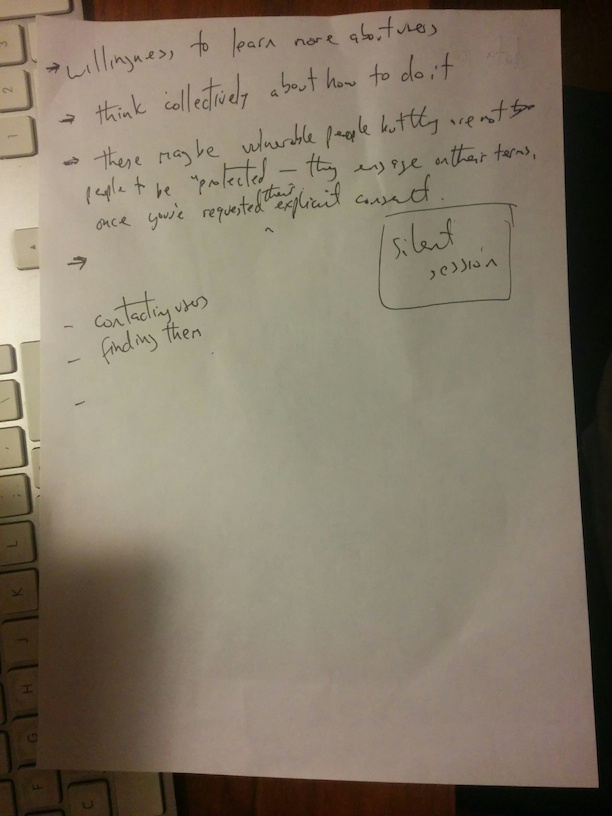 → willingness to learn more about users
→ think collectively about how to do it
→ these may be vulnerable people but they are not
people to be "protected — they engage on their terms,
once you've requested their explicit consent.
→
silent
session
- contacting users
- finding them
-